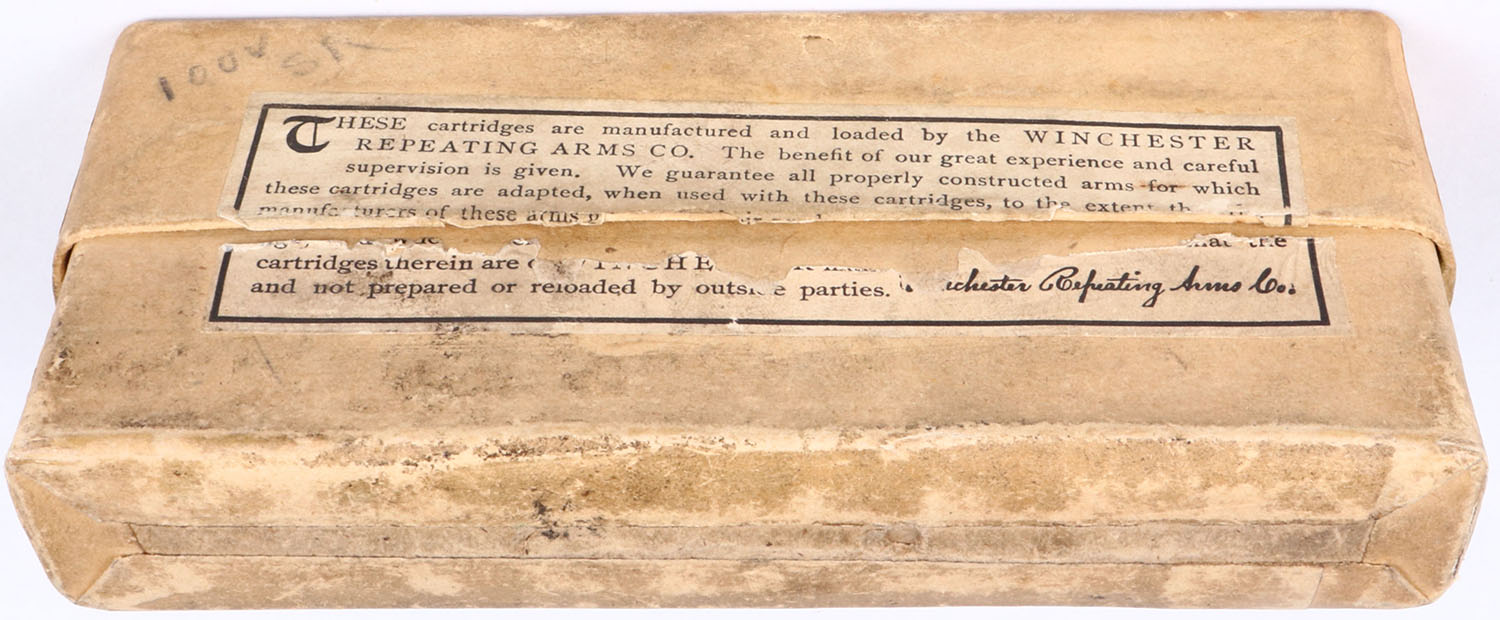 100V
SK
THESE cartridges are manufactured and loaded by the WINCHESTER
REPEATING ARMS CO. The benefit of our great experience and careful
supervision is given. We guarantee all properly constructed arms for which
these cartridges are adapted, when used with these cartridges, to the extent
of these arms
the
cartridges therein are
and not prepared or reloaded by parties. Repeating Arms Co.